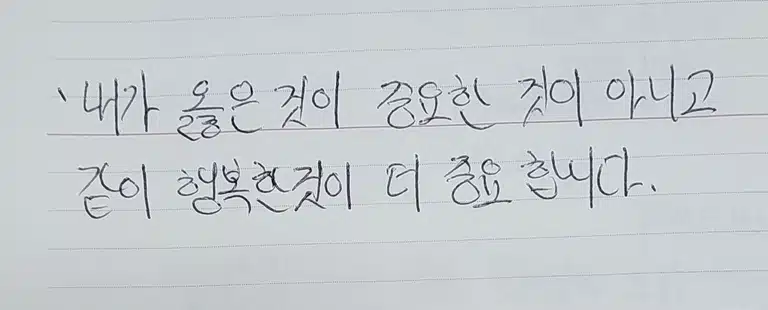 '내가 옳은 것이 중요한 것이 아니고
같이 행복한것이 더 중요 합니다.